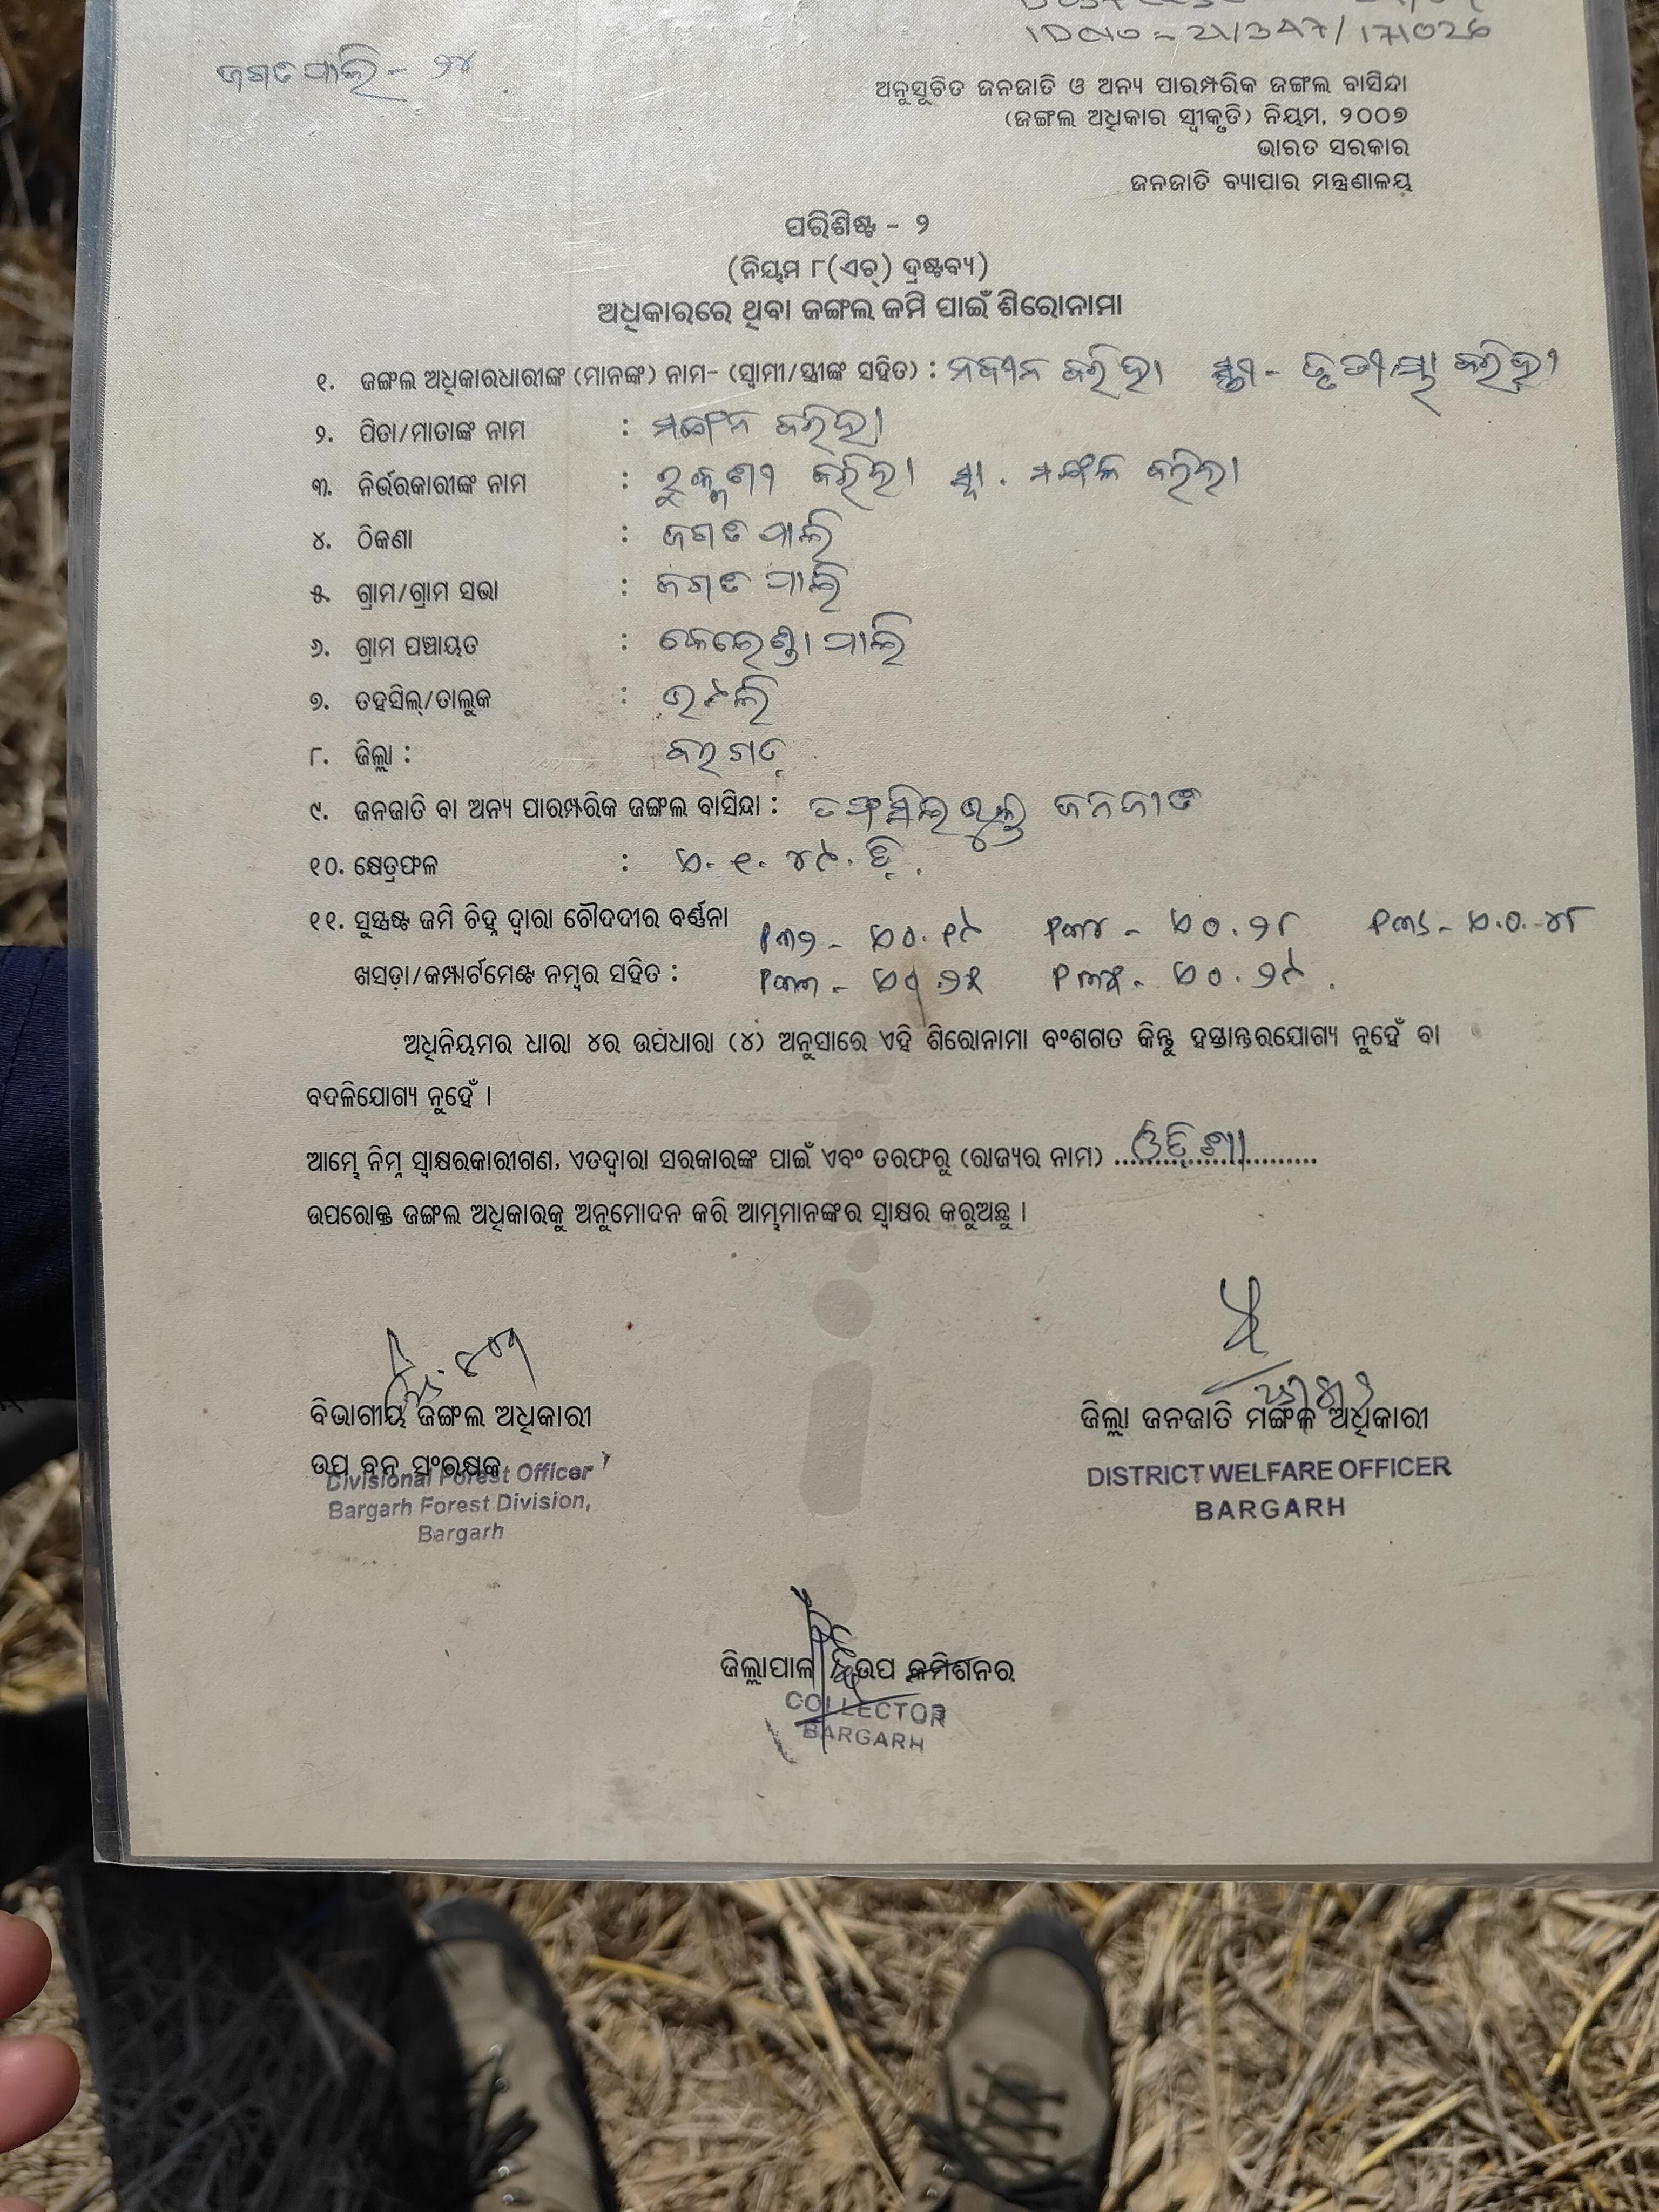 ID NO - 21/347/171026
ଜଗତପାଲି - ୨୪
ଅନୁସୂଚିତ ଜନଜାତି ଓ ଅନ୍ୟ ପାରମ୍ପରିକ ଜଙ୍ଗଲ ବାସିନ୍ଦା
(ଜଙ୍ଗଲ ଅଧିକାର ସ୍ୱୀକୃତି) ନିୟମ, ୨୦୦୭
ଭାରତ ସରକାର
ଜନଜାତି ବ୍ୟାପାର ମନ୍ତ୍ରଣାଳୟ
ପରିଶିଷ୍ଟ - ୨
(ନିୟମ ୮(ଏଚ୍) ଦ୍ରଷ୍ଟବ୍ୟ)
ଅଧିକାରରେ ଥିବା ଜଙ୍ଗଲ ଜମି ପାଇଁ ଶିରୋନାମା
୧. ଜଙ୍ଗଲ ଅଧିକାରଧାରୀଙ୍କ (ମାନଙ୍କ) ନାମ- (ସ୍ୱାମୀ/ସ୍ତ୍ରୀଙ୍କ ସହିତ) : ନବୀନ ବରିହା ସ୍ତ୍ରୀ - ତୃତୀୟା ବରିହା
୨. ପିତା/ମାତାଙ୍କ ନାମ : ବରିହା
୩. ନିର୍ଭରକାରୀଙ୍କ ନାମ : ରୁକ୍ମଣୀ ବରିହା ସ୍ୱା. ମଙ୍ଗଳ ବରିହା
୪. ଠିକଣା : ଜଗତପାଲି
୫. ଗ୍ରାମ/ଗ୍ରାମ ସଭା : ଜଗତପାଲି
୬. ଗ୍ରାମ ପଞ୍ଚାୟତ : କେରେଣ୍ଡାପାଲି
୭. ତହସିଲ୍/ତାଲୁକ : ଭଟଲି
୮. ଜିଲ୍ଲା : ବରଗଡ଼
୯. ଜନଜାତି ବା ଅନ୍ୟ ପାରମ୍ପରିକ ଜଙ୍ଗଲ ବାସିନ୍ଦା : ତଫସିଲଭୁକ୍ତ ଜନଜାତି
୧୦. କ୍ଷେତ୍ରଫଳ : ଏ. ୧. ୪୯. ଡି.
୧୧. ସୁସ୍ପଷ୍ଟ ଜମି ଚିହ୍ନ ଦ୍ୱାରା ଚୌଦଦୀର ବର୍ଣ୍ଣନା ୧୩୨ - ଏ୦.୧୯ ୧୩୪ - ଏ୦.୨୮ ୧୩୬ - ଏ.୦.୪୮
ଖସଡ଼ା/କମ୍ପାର୍ଟମେଣ୍ଟ ନମ୍ବର ସହିତ : ୧୩୩ - ଏ୦.୨୫ ୧୩୫ - ଏ୦.୨୯.
ଅଧିନିୟମର ଧାରା ୪ର ଉପଧାରା (୪) ଅନୁସାରେ ଏହି ଶିରୋନାମା ବଂଶଗତ କିନ୍ତୁ ହସ୍ତାନ୍ତରଯୋଗ୍ୟ ନୁହେଁ ବା
ବଦଳିଯୋଗ୍ୟ ନୁହେଁ ।
ଆମ୍ଭେ ନିମ୍ନ ସ୍ୱାକ୍ଷରକାରୀଗଣ, ଏତଦ୍ୱାରା ସରକାରଙ୍କ ପାଇଁ ଏବଂ ତରଫରୁ (ରାଜ୍ୟର ନାମ) ....ଓଡ଼ିଶା....
ଉପରୋକ୍ତ ଜଙ୍ଗଲ ଅଧିକାରକୁ ଅନୁମୋଦନ କରି ଆମ୍ଭମାନଙ୍କର ସ୍ୱାକ୍ଷର କରୁଅଛୁ ।
ବିଭାଗୀୟ ଜଙ୍ଗଲ ଅଧିକାରୀ
ଉପ ବନ ସଂରକ୍ଷକ
Divisional Forest Officer
Bargarh Forest Division,
Bargarh
ଜିଲ୍ଲା ଜନଜାତି ମଙ୍ଗଳ ଅଧିକାରୀ
DISTRICT WELFARE OFFICER
BARGARH
ଜିଲ୍ଲାପାଳ ଉପ କମିଶନର
COLLECTOR
BARGARH